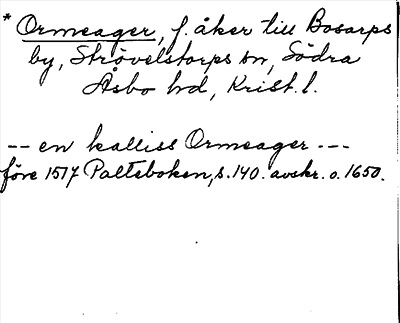 * Ormeager, f. åker till Bosarps
by, Strövelstorps sn, Södra
Åsbo hd, Krist. l.
-- en kalliss Ormeager ---
före 1517 Palteboken, s. 140. avskr. o. 1650.